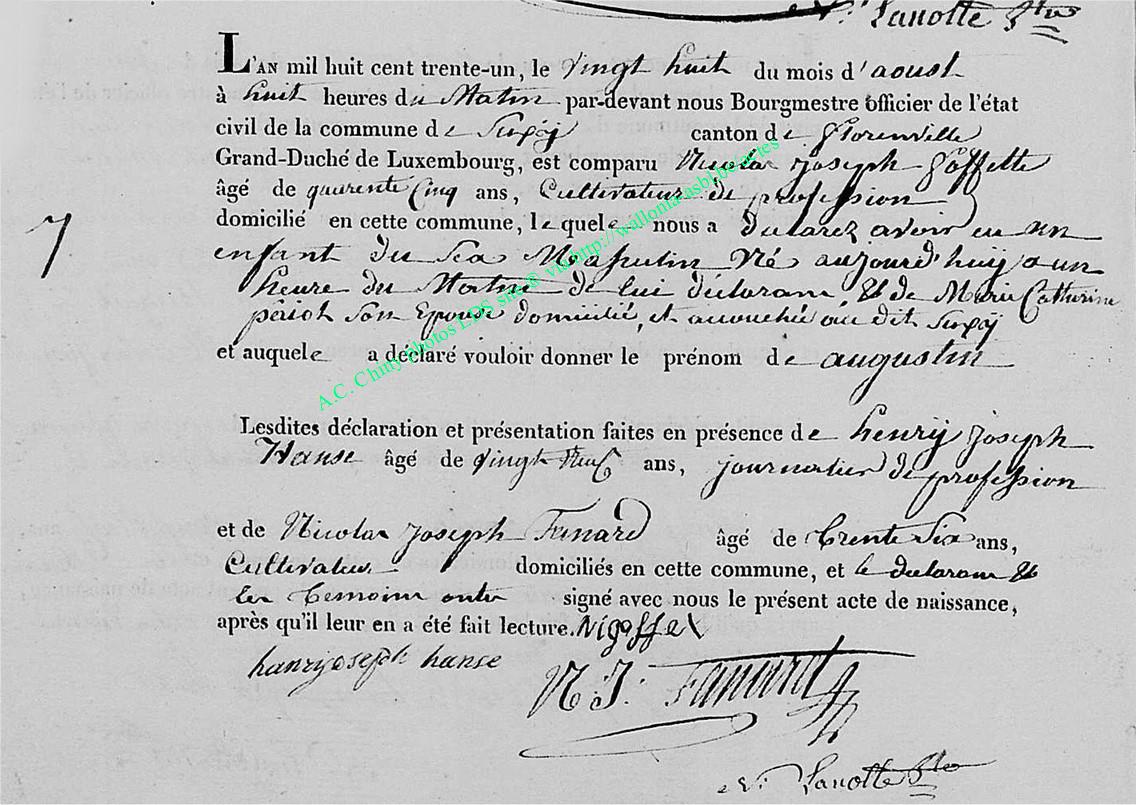 Lanotte
L'AN mil huit cent trente-un, le vingt huit du mois d'aoust
à huit heures du Matin par-devant nous Bourgmestre officier de l'état
civil de la commune de Suxÿ canton de Florenville
Grand-Duché de Luxembourg, est comparu Nicolas Joseph Goffette
âgé de quarente Cinq ans, Cultivateur de profession
domicilié en cette commune, lequele nous a declarez avoir eu un
7
enfant du sex Masculin Né aujourd'huÿ a un
heure du Matin de lui declarant, et de Marie Catherine
periot son Epouse domicilié, et accouchée au dit Suxÿ
et auquele a déclaré vouloir donner le prénom de augustin
Lesdites déclaration et présentation faites en présence de henrÿ joseph
Hanse âgé de vingt neuf ans, journalier de profession
et de Nicolas joseph Fanard âgé de trente six ans,
Cultivateur domiciliés en cette commune, et le declarant et
les temoins ont signé avec nous le présent acte de naissance,
après qu'il leur en a été fait lecture. Nigoffet
hanrijoseph hanse
N. J. Fanard
Lanotte
A.C. Chiny photos LDS site © via http://wallonia.asbl.be/actes